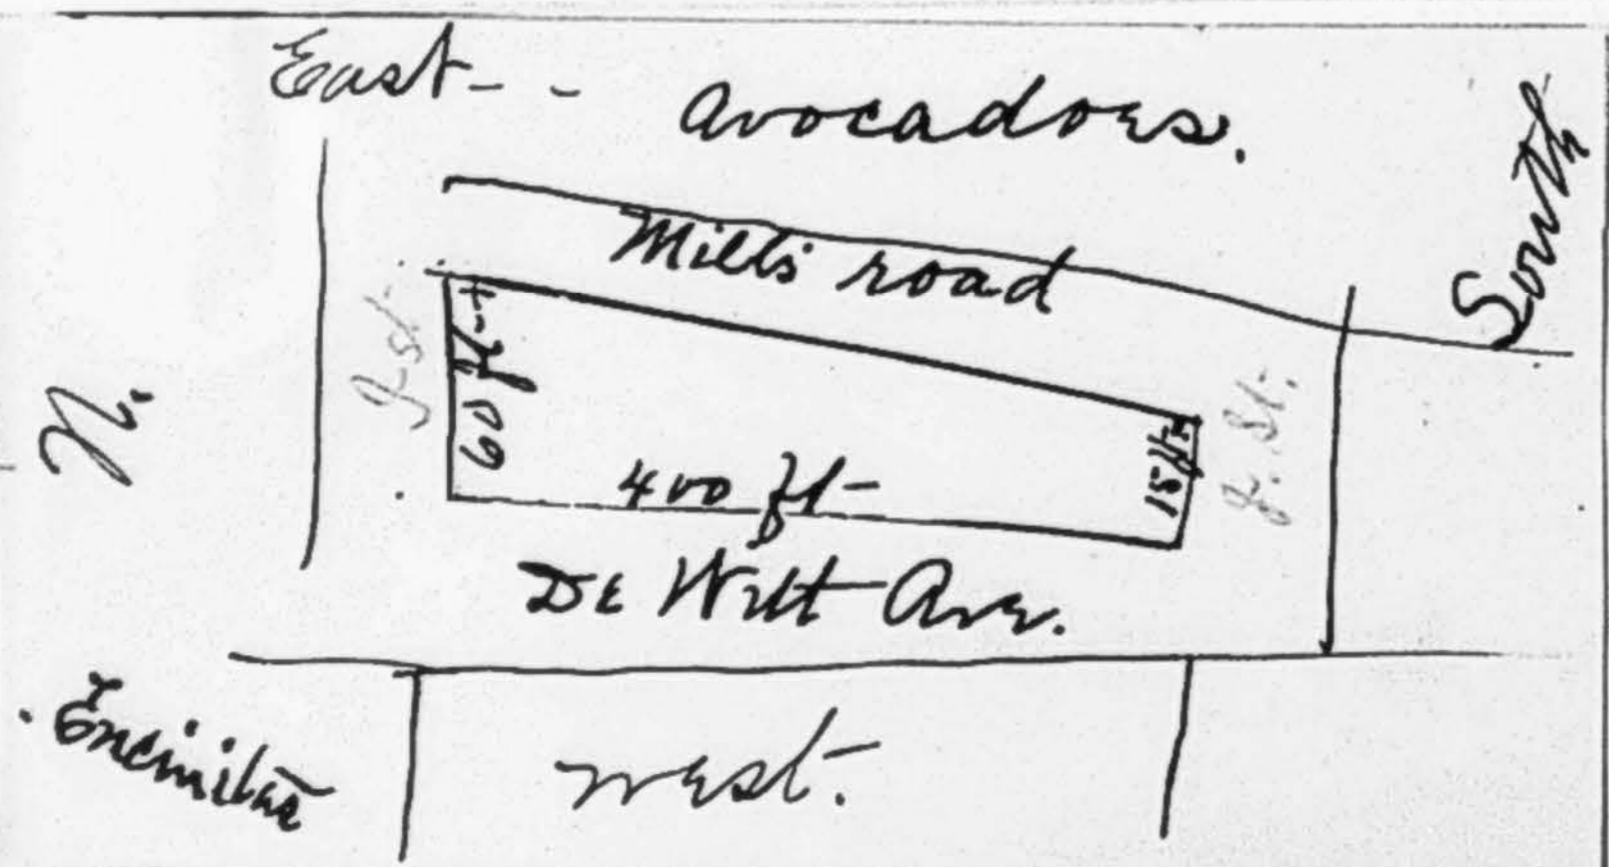 East - - Avocadoes.
South
Mills road
N.
60 ft
15 ft
J. St.
400 ft
De Witt Ave.
Encinitas
West.